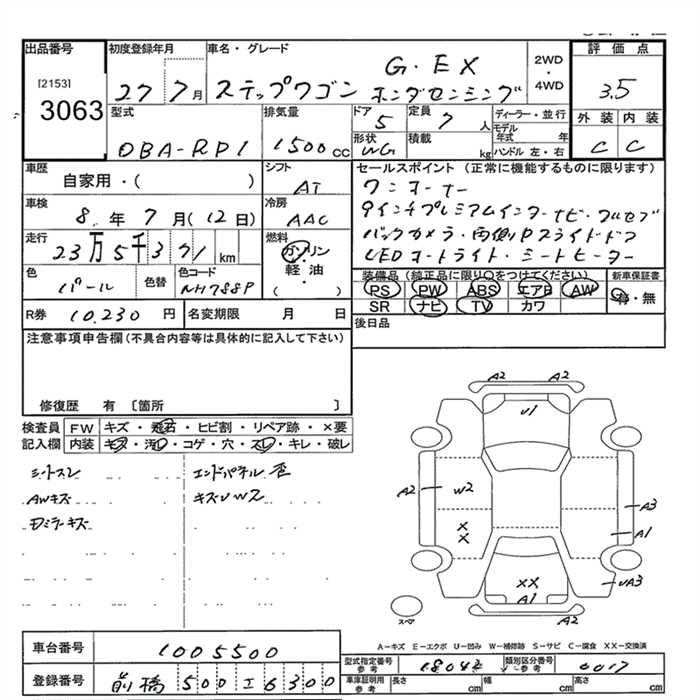 出品番号 初度登録年月 車名・グレード 評価点
[2153]
3063
27 7月 ステップワゴン G・EX ホンダセンシング 2WD・4WD 3.5
型式 排気量 ドア 定員 ディーラー・並行 外装 内装
DBA-RP1 1500cc 5 7人 モデル年式 年 C C
形状 WG 積載 kg ハンドル 左・右
車歴 シフト セールスポイント(正常に機能するものに限ります)
自家用・( ) AT ワンオーナー
車検 冷房 9インチプレミアムインターナビ・フルセグ
8年7月(12日) AAC バックカメラ・両側Pスライドドア
走行 燃料 LEDオートライト・シートヒーター
23万5千371km ガソリン・軽油・( )
色 色替 色コード 装備品(純正品に限り○をつけてください) 新車保証書
パール NH788P PS PW ABS エアB AW 有・無
SR ナビ TV カワ
R券 10,230円 名変期限 月 日 後日品
注意事項申告欄(不具合内容等は具体的に記入して下さい)
修復歴 有 [箇所 ]
検査員 FW キズ・飛石・ヒビ割・リペア跡・×要
記入欄 内装 キズ・汚レ・コゲ・穴・スレ・キレ・破レ
シートスレ エンドパネル歪
AWキズ キズUW2
ドアミラーキズ
A2 A2
U1
A2 W2 A3
X X A1
XX UA3
A1
スペア A2
A-キズ E-エクボ U-凹み W-補修跡 S-サビ C-腐食 XX-交換済
車台番号 1005500 型式指定番号 参考 18042 類別区分番号 参考 0017
登録番号 前橋 500 エ 6300 車庫証明用 参考 長さ cm 幅 cm 高さ cm